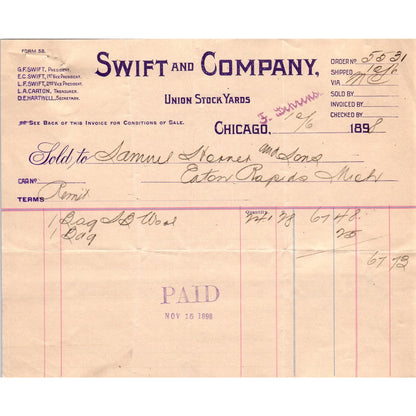 FORM 58.
G.F. SWIFT, PRESIDENT.
E.C. SWIFT, 1ST VICE PRESIDENT.
L.F. SWIFT, 2ND VICE PRESIDENT.
L.A. CARTON, TREASURER.
D.E. HARTWELL, SECRETARY.
SWIFT AND COMPANY,
UNION STOCK YARDS
ORDER No 5531
SHIPPED 10/6
VIA
SOLD BY
INVOICED BY
CHECKED BY
SEE BACK OF THIS INVOICE FOR CONDITIONS OF SALE.
CHICAGO, 10/6 1898
Sold to Samuel Horner and Sons
Eaton Rapids Mich
CAR No
TERMS Remit
Quantity
1 Bag Wool 241 28 67 48
1 Bag 25
67 73
PAID
NOV 15 1898